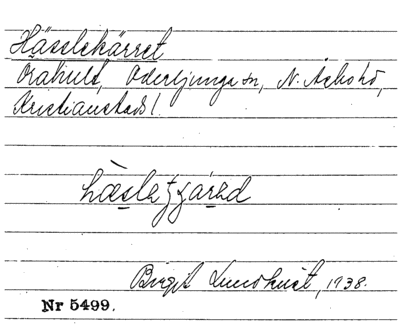 Hässlekärret
Örahult, Oderljunga sn, N. Åsbo hd,
Kristianstads l.
Birgit Lundkvist, 1938.
Nr 5499.